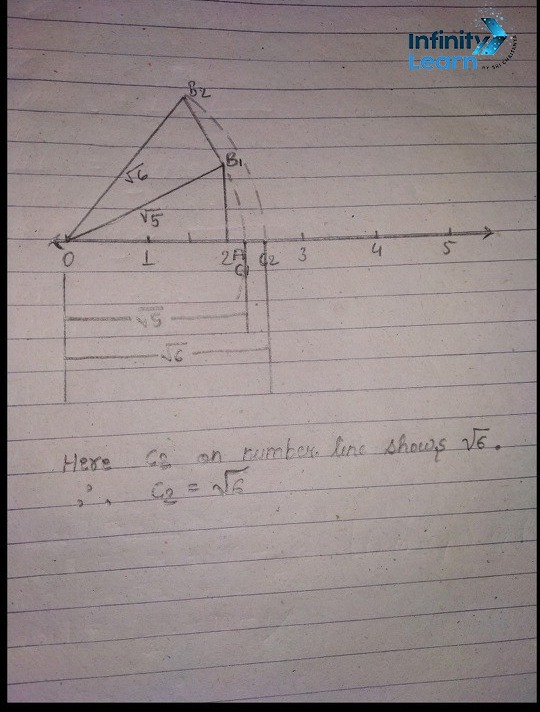 Infinity
Learn
BY SRI CHAITANYA
B2
B1
√6
√5
0 1 2A 3 4 5
C1 C2
√5
√6
Here C2 on number line shows √6.
∴ C2 = √6